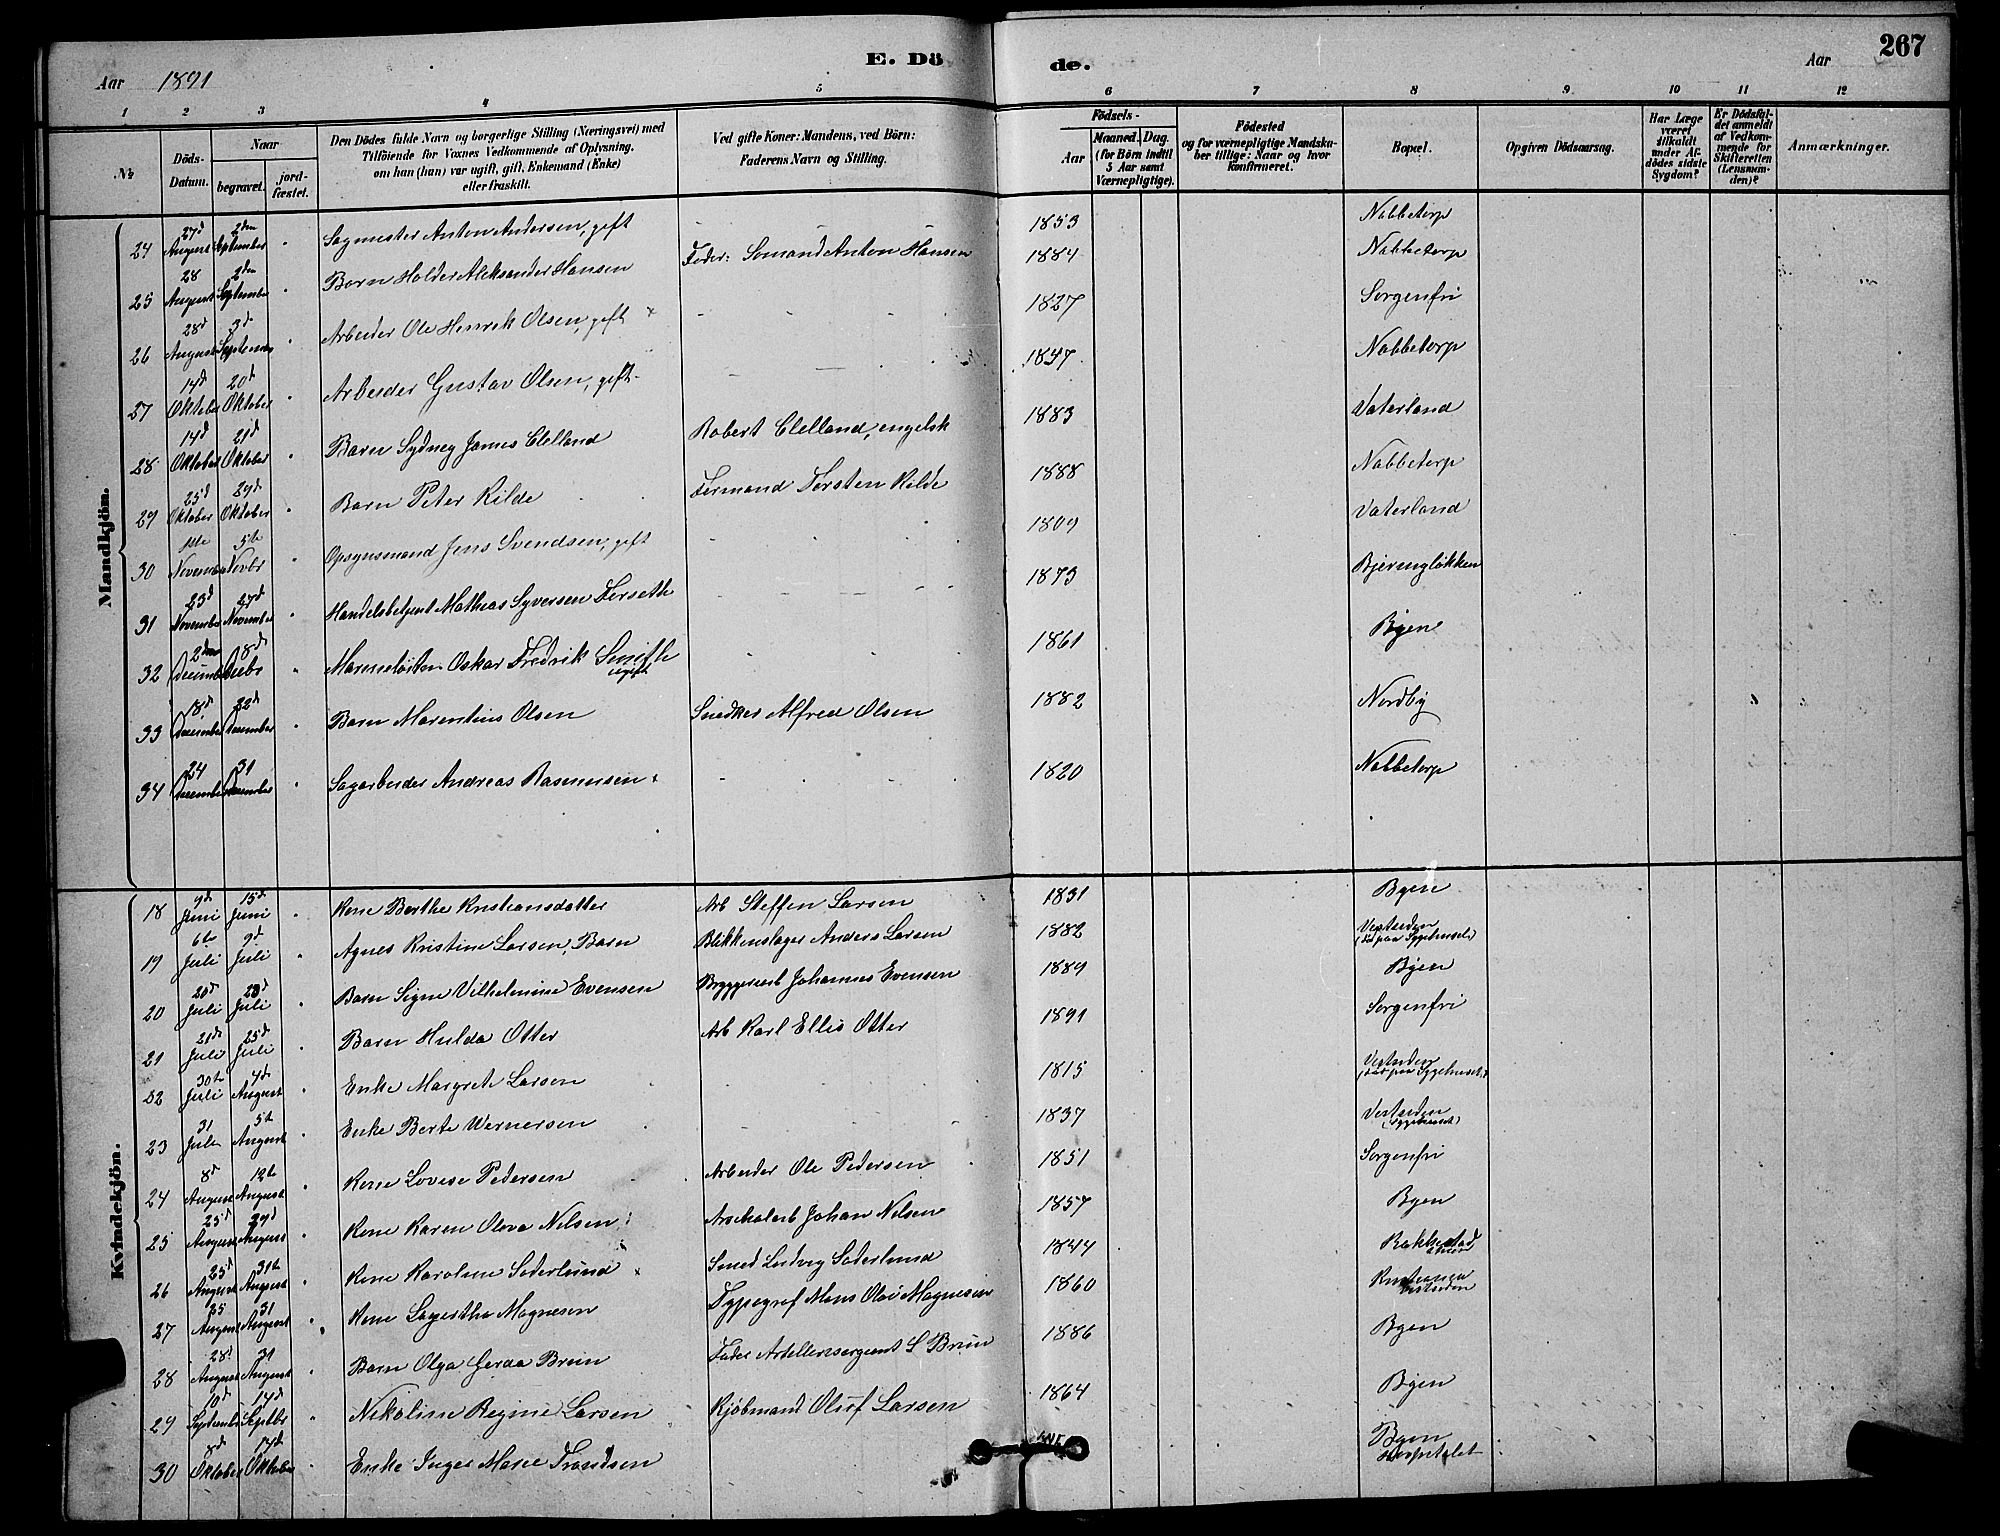 267
E. Döde.
Aar 1891
Aar
1 2 3 4 5 6 7 8 9 10 11 12
№
Döds-Datum.
Naar
begravet.
jordfæstet.
Den Dödes fulde Navn og borgerlige Stilling (Næringsvei) med
Tilföiende for Voxnes Vedkommende af Oplysning,
om han (hun) var ugift, gift, Enkemand (Enke)
eller fraskilt.
Ved gifte Koner: Mandens, ved Börn:
Faderens Navn og Stilling.
Födsels-
Aar
Maaned. Dag.
(for Börn indtil
5 Aar samt
Værnepligtige).
Födested
og for værnepligtige Mandskaber tillige: Naar og hvor
konfirmeret.
Bopæl.
Opgiven Dödsaarsag.
Har Læge
været
tilkaldt
under Afdödes sidste
Sygdom?
Er Dödsfaldet anmeldt
af Vedkommende for
Skifteretten
(Lensmanden)?
Anmærkninger.
Mandkjön.
24 27d August 2den September Sagmester Anton Andersen, gift 1853 Nabbetorp
25 28 August 2den September Barn Holder Aleksander Hansen Fader: Sömand Anton Hansen 1884 Nabbetorp
26 28d August 3d September Arbeider Ole Henrik Olsen, gift 1827 Sorgenfri
27 14d Oktober 20d Oktober Arbeider Gustav Olsen, gift 1847 Nabbetorp
28 14d Oktober 21d Oktober Barn Sydney James Clelland Robert Clelland, engelsk 1883 Vaterland
29 25d Oktober 29d Oktober Barn Peter Kilde Formand Torsten Kilde 1888 Nabbetorp
30 1ste November 5te Novbr Opsynsmand Jens Svendsen, gift 1809 Vaterland
31 23d November 27d November Handelsbetjent Mathias Syversen Torseth 1873 Bjeringløkken
32 2den December 8d Decbr Oskar Fredrik Smith ugift 1861 Byen
33 18d December 22d December Barn Marentius Olsen Snedker Alfred Olsen 1882 Nordby
34 24 December 31 December Sagarbeider Andreas Rasmussen 1820 Nabbetorp
Kvindekjön.
18 9d Juni 15d Juni Kone Berthe Kristiansdatter Arb Steffen Larsen 1831 Byen
19 6te Juli 9d Juli Agnes Kristine Larsen, Barn Blikkenslager Anders Larsen 1882 Vestsiden (död paa Sygehuset)
20 20d Juli 23d Juli Barn Signe Vilhelmine Evensen Bryggeriarb Johannes Evensen 1889 Byen
21 21de Juli 25d Juli Barn Hulda Otter Arb Karl Ellis Otter 1891 Sorgenfri
22 30te Juli 4d August Enke Margrete Larsen 1815 Vestsiden (död paa Sygehuset)
23 31 Juli 5te August Enke Berte Wernersen 1837 Vestsiden (Sygehuset)
24 8d August 12te August Kone Lovise Pedersen Arbeider Ole Pedersen 1851 Sorgenfri
25 25d August 29d August Kone Karen Olava Nilsen Johan Nilsen 1857 Byen
26 25d August 31te August Kone Karoline Söderlund Smed Ludvig Söderlund 1844 Bakkestad
27 25 August 31 August Kone Lagertha Magnesen Typograf Mons Olai Magnesen 1860 Kristiania Vestsiden
28 28d August 31 August Barn Olga Gerda Bruun Fader Artillerisergeant S Bruun 1886 Byen
29 10d September 14d Septbr Nikoline Regine Larsen Kjöbmand Oluf Larsen 1864 Byen
30 8d Oktober 14d Oktober Enke Inger Marie Trondsen Byen Hospitalet